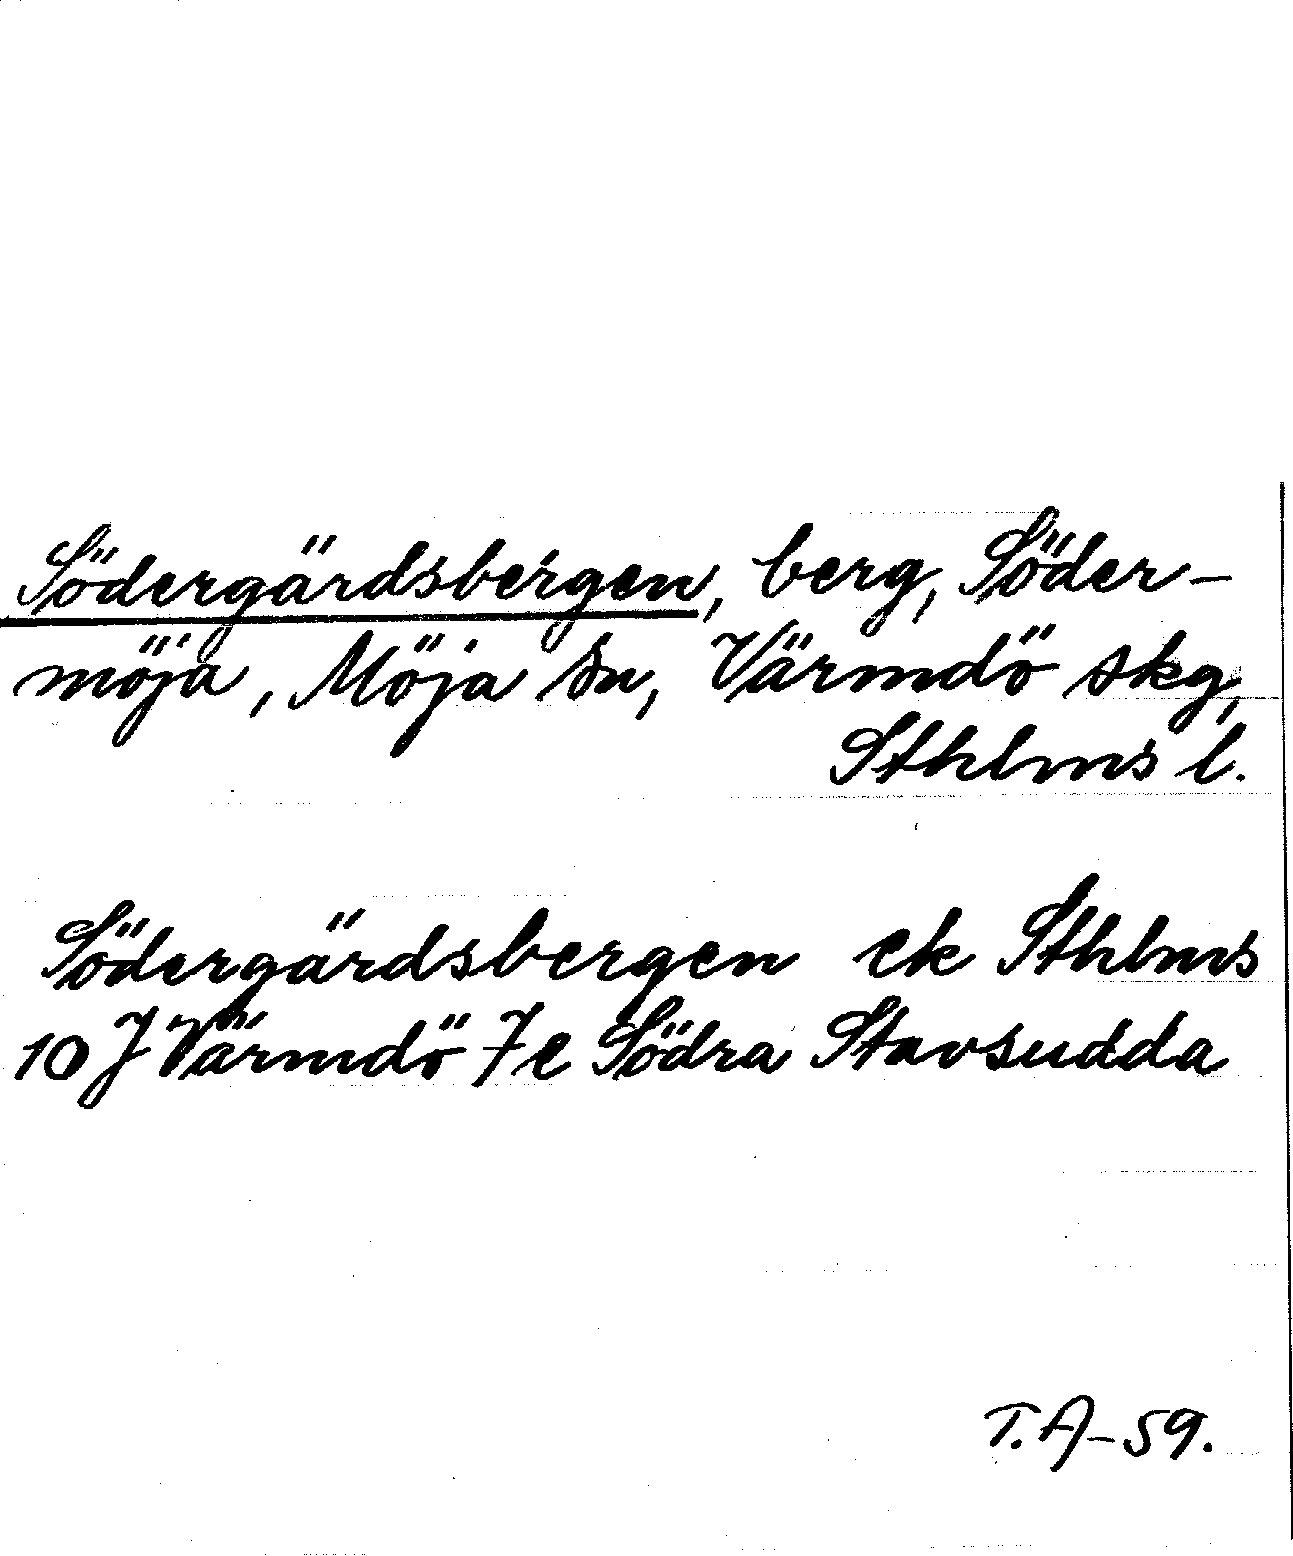 Södergärdsbergen, berg, Söder-
möja, Möja sn, Värmdö skg,
Sthlms l.
Södergärdsbergen ek Sthlms
10 J Värmdö 7e Södra Stavsudda
T.A-59.